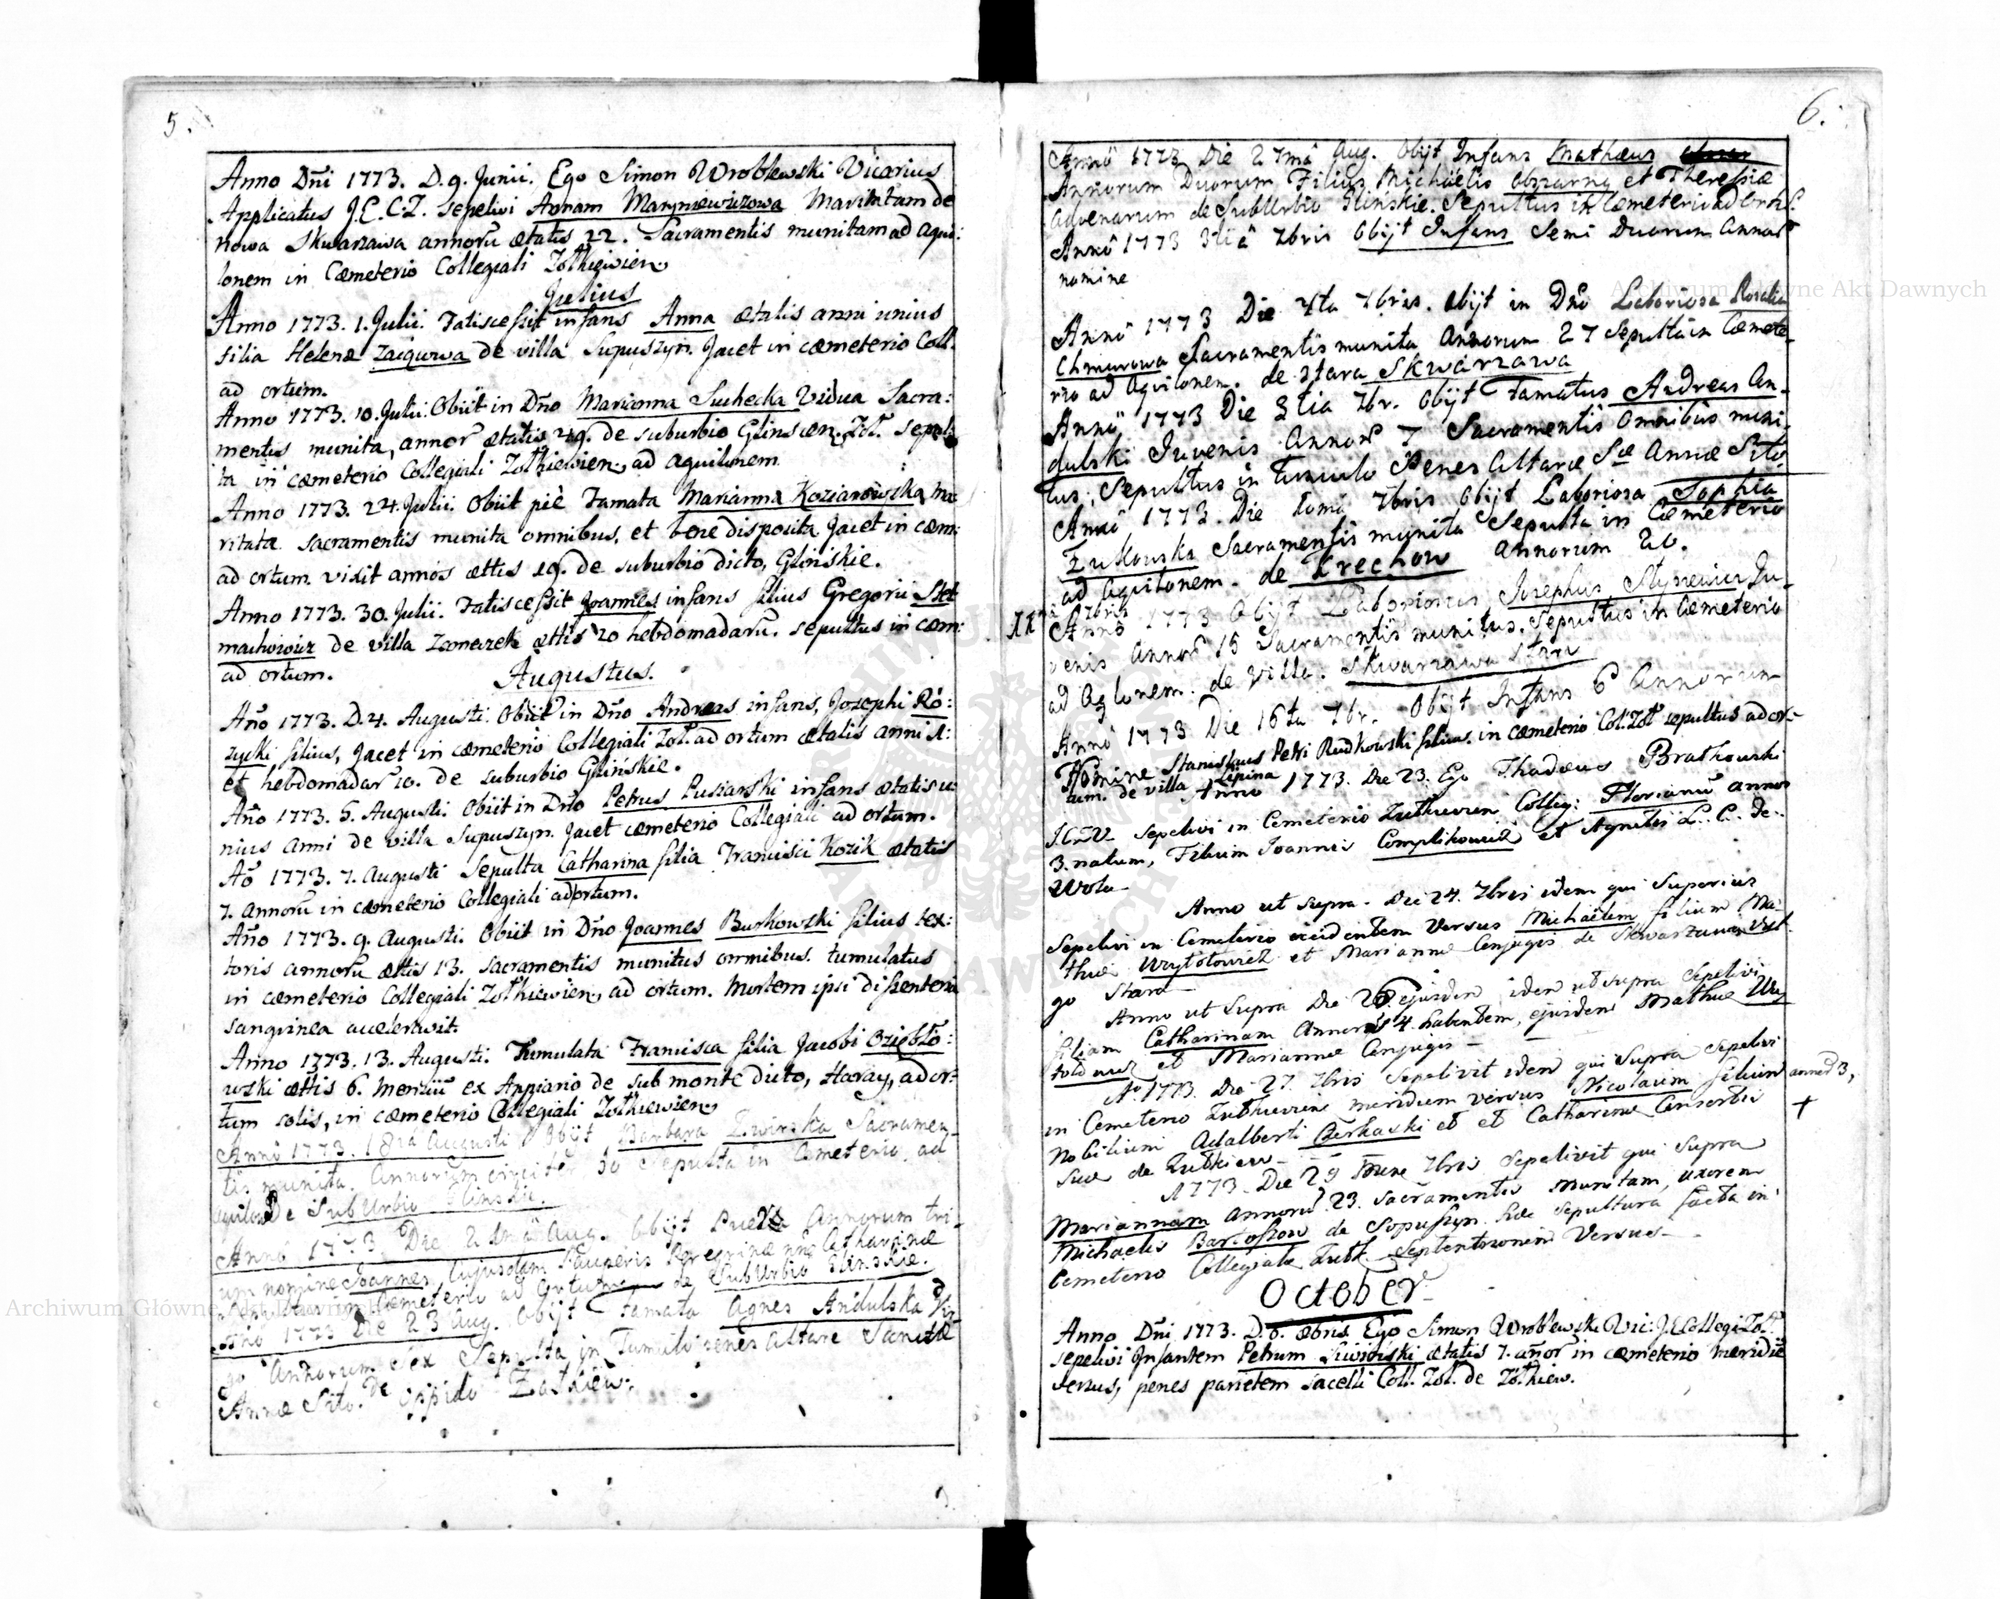 5.
Anno Dñi 1773. D. 9. Junii. Ego Simon Wroblewski Vicarius
Applicatus J.E.C.Z. sepelivi Annam Maryniewiczowa Maritatam de
nowa Skwarzawa annorũ ætatis 22. Sacramentis munitam ad aqui:
lonem in Cæmeterio Collegiali Zołkiewien
Julius
Anno 1773. 1. Julii. Fatiscessit infans Anna ætatis anni unius
filia Helenæ de villa Supuszyn. Jacet in cæmeterio Coll.
ad ortum.
Anno 1773. 10. Julii. Obiit in Dño Marianna Suchecka Vidua Sacra:
mentis munita, annor ætatis 49. de suburbio Glinscen. Zol. sepul:
ta in cæmeterio Collegiali Zołkiewien, ad aquilonem
Anno 1773. 24. Julii. Obiit piè Famata Marianna Kozianowska, ma:
ritata sacramentis munita omnibus, et bene disposita Jacet in cæm:
ad ortum. vixit annos ættis 29. de suburbio dicto, Glińskie.
Anno 1773. 30. Julii. Fatiscessit Joannes infans filius Gregorii Stet
machowicz de villa ættis 20 hebdomadarũ. sepultus in cæm:
ad ortum.
Augustus.
Año 1773. D. 4. Augusti. Obiit in Dño Andreas infans, Josephi Ró:
zycki filius, Jacet in cæmeterio Collegiali Zoł. ad ortum ætatis anni 1:
et hebdomadar 10. de suburbio Glińskie.
Año 1773. 5. Augusti. Obiit in Dño Petrus Pusiarski infans ætatis u:
nius anni de villa Supuszyn. Jacet cæmeterio Collegiali ad ortum.
Año 1773. 7. Augusti Sepulta Catharina filia Francisci Kozik ætatis
7. annorũ in cæmeterio Collegiali ad ortum.
Año 1773. 9. Augusti. Obiit in Dño Joannes Burkowski filius tex:
toris annorũ ættis 13. sacramentis munitus omnibus. tumulatus
in cæmeterio Collegiali Zołkiewien, ad ortum. Mortem ipsi dissenteria
sanguinea acceleravit.
Anno 1773. 13. Augusti. Tumulata Francisca filia Jacobi Oziębło:
wski ættis 6. Mensiũ ex Appiario de sub monte dicto, Haray, ad or:
tum solis, in cæmeterio Collegiali Zołkiewien
Annô 1773. 18va Augusti Obijt Barbara Zwirska Sacramen_
tis munita. Annorum circiter 30 Sepulta in Cæmeterio ad
aquilon De SubUrbio Glinskie.
Annô 1773 Die Aug. Obijt Annorum tri_
um nomine Joannes, Cujusdam Pauperis Peregrinæ Catharinæ
Sepultus in Cæmeterio ad Ortum de SubUrbio Glinskie.
Año 1773 Die 23 Aug. Obijt Famata Agnes Andulska Vir
go Annorum Sex Sepulta in Tumulo penes altare Sanctæ
Annæ Sito. De Oppido Zołkiew.
6.
Annô 1773 Die 27mâ Aug. Obijt Infans Mathæus
Annorum Duorum Filius Michäelis et Theresiæ
advenarum de SubUrbio Glinskie. Sepultus in Cæmeterio ad
Annô 1773 3tiâ 7bris Obijt Infans Semi Duorum Annor
nomine
Annô 1773 Die 4ta 7bris. Obijt in Dño Laboriosa Rosalia
Chmurowa Sacramentis munita Annorum 27 Sepulta in Cæmete_
rio ad Aquilonem. de stara Skwarzawa
Annô 1773 Die 3tia 7br. Obijt Famatus Andreas An_
dulski Juvenis Annor 7 Sacramentis Omnibus muni_
tus, Sepultus in Tumulo Penes Altare Sæ Annæ Sito
Annô 1773. Die 7bris Obijt Laboriosa Sophia
Zukowska Sacramentis munita Sepulta in Cæmeterio
ad Aquilonem. de Krechow Annorum 20.
7bris
Annô 1773 Obijt Laboriosus Josephus Ju_
venis Annor 15 Sacramentis munitus. Sepultus in Cæmeterio
ad Aqlonem. de Villa. Skwarzawa stara
Annô 1773 Die 16ta 7br. Obijt Infans 6 Annorum
Nomine Stanislaus Petri Rudkowski filius. in cæmeterio Col. Zoł sepultus ad or_
tum. de villa Lipina Anno 1773. Die 23. Ego Thadæus Bratkowski
sepelivi in Cemeterio Zułkievien Colleg: Florianũ annos
3. natum, Filium Joannis et Agnetis L. C. de
Wola
Anno ut supra. Die 24. 7bris idem qui Superius
Sepelivi in Cemeterio occidentem versus Michaëlem filium Ma:
thiæ et Marianne Conjugis de Skwarzawa
stara
Anno ut Supra Die 26. ejusdem idem ut supra Sepelivi
filiam Catharinam Annorũ 4. habentem, ejusdem Mathiæ Wy
et Marianne Conjugis
A 1773. Die 27. 7bris Sepelivit idem qui Supra sepelivi
in Cemeterio Zułkievien meridiem versus Nicolaum filium annorũ 3,
Nobilium Adalberti Berkaski et et Catharine Consortis
suæ de Zułkiew
+
A 1773. Die 29 7bris Sepelivit qui Supra
Mariannam annorũ 23. sacramentis munitam, uxorem
Michaelis Bartoszow de Sopuszyn. Hæc sepultura facta in
Cemeterio Collegiate Zułk Septentrionem Versus
October
Anno Dñi 1773. D. 6. 8bris. Ego Simon Wroblewski Vic: J.E. Collegi Zoł.
sepelivi Infantem Petrum Siwiński ætatis 7. añor in cæmeterio Meridiẽ
versus, penes parietem sacelli Coll. Zoł. de Zołkiew.
Archiwum Główne Akt Dawnych
Archiwum Główne Akt Dawnych